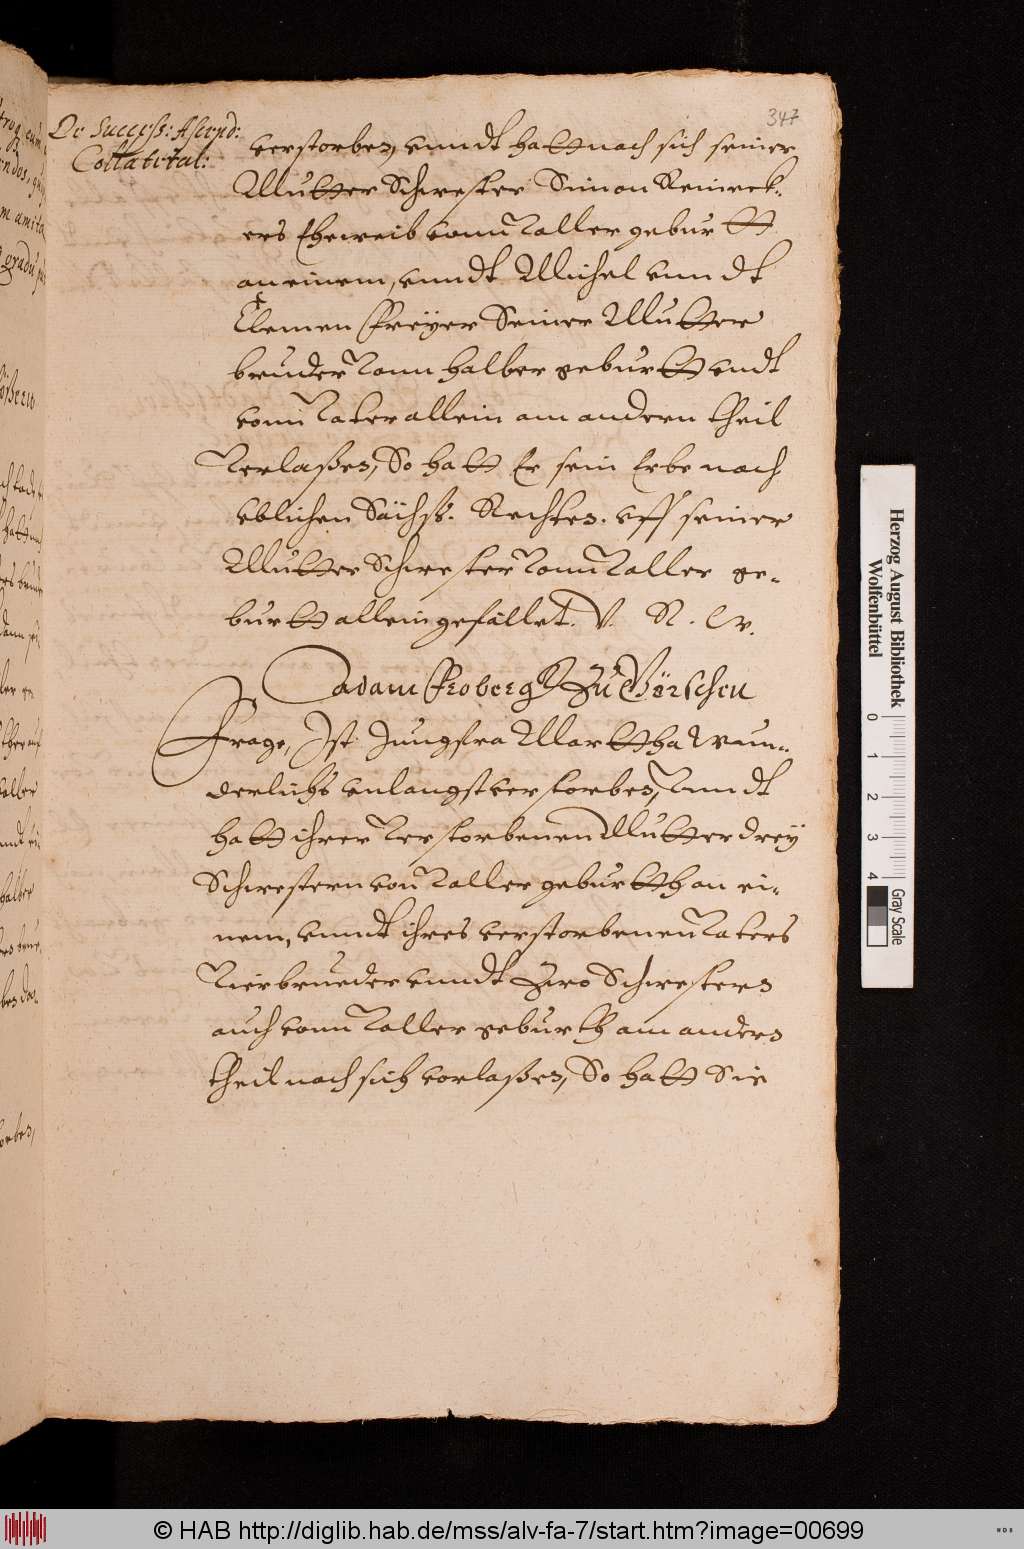 347
De Success: Ascend:
Collateral:
verstorben, vnndt hatt nach sich seiner
Mutter Schwester Simon Reineck-
ers Eheweib vonn Voller geburtt
an einem, vnndt Michel vnndt
Clemen Freyer Seiner Mutter
bruder Vonn halber geburtt vndt
vom Vater allein am andern theil
Verlaßen, So hatt Er sein Erbe nach
vblichen Sächß. Rechten. vff seiner
Mutter Schwester Vonn Voller ge-
burtt allein gefället. V. R. W.
Adam Froberg Zu Görschen
Frage, Ist Jungfra Martha Wun-
derlichs vnlangst verstorben, Vnndt
hatt ihrer Verstorbenen Mutter drey
Schwestern von Voller geburtth an ei-
nem, vnndt ihres verstorbenen Vaters
Vier brueder vnndt Zwo Schwestern
auch vonn Voller geburth am andern
theil nach sich vorlaßen, So hatt Sie
Herzog August Bibliothek
Wolfenbüttel
0 1 2 3 4
Gray Scale
© HAB http://diglib.hab.de/mss/alv-fa-7/start.htm?image=00699